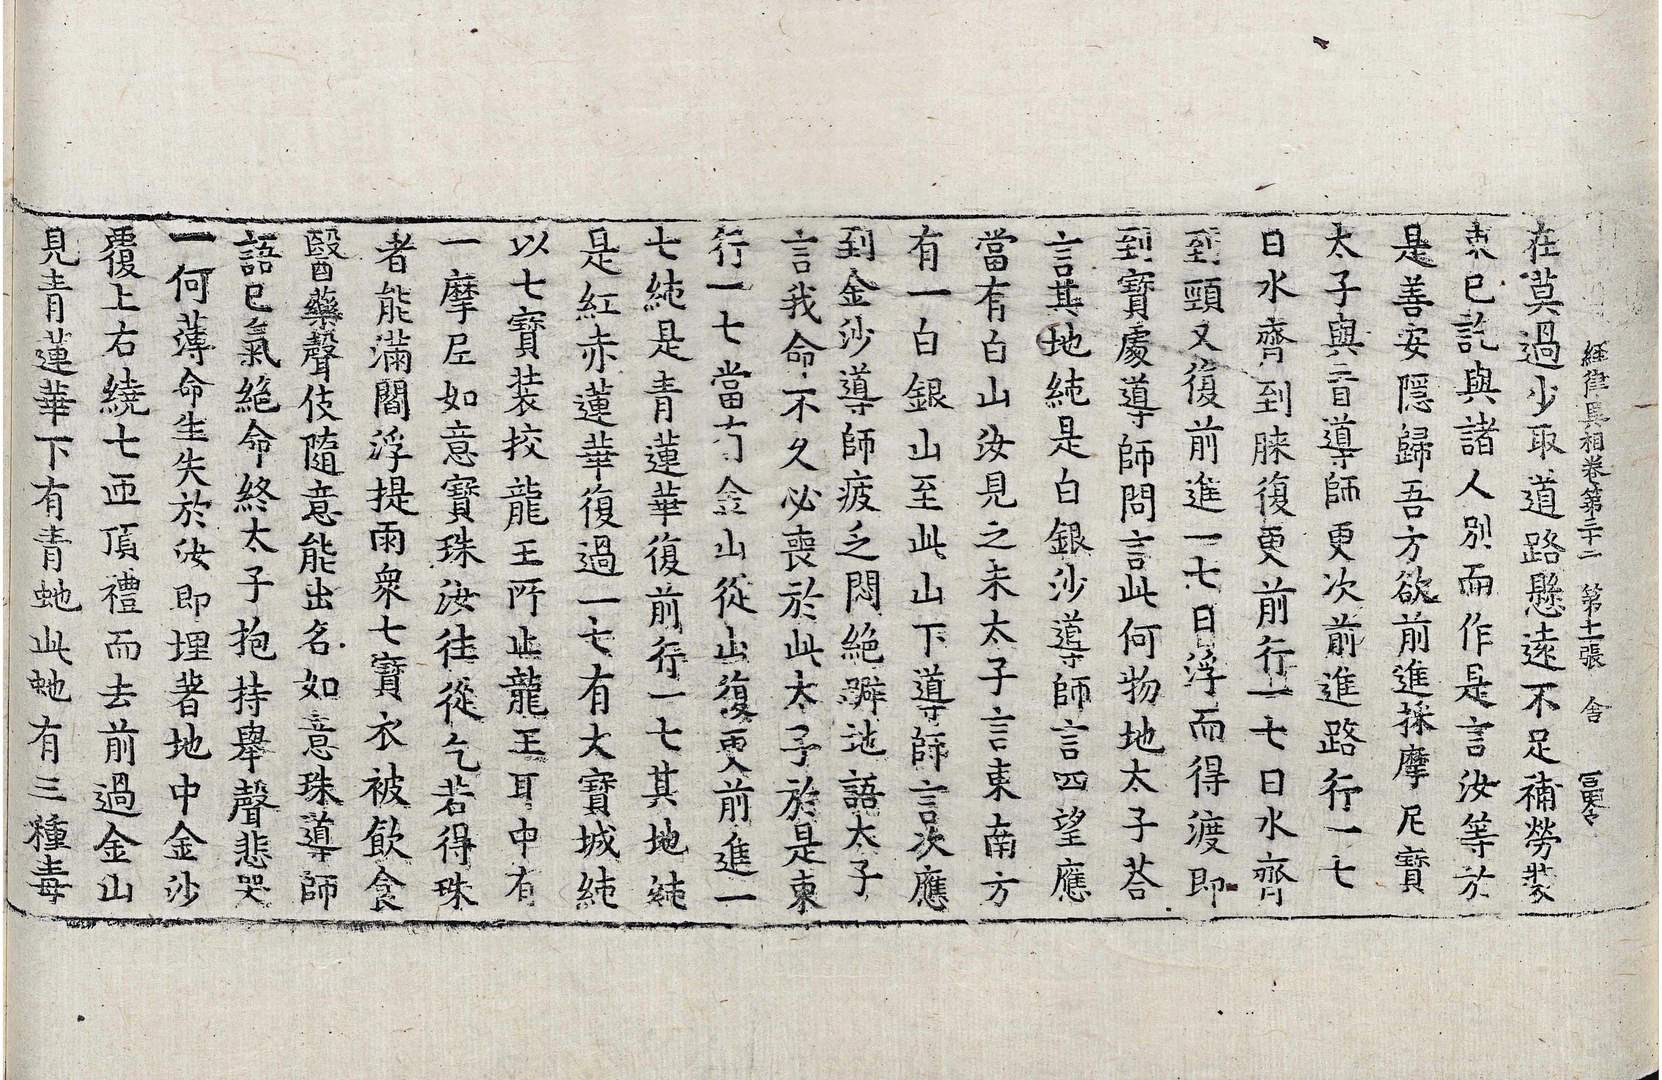 経律異相卷第三十二　第十一張　舍
在莫過少取道路懸遠不足補勞裝
束已訖與諸人別而作是言汝等於
是善安隱歸吾方欲前進採摩尼寶
太子與盲導師更次前進路行一七
日水齊到膝復更前行一七日水齊
到頸又復前進一七日浮而得渡即
到寶處導師問言此何物地太子荅
言其地純是白銀沙導師言四望應
當有白山汝見之未太子言東南方
有一白銀山至此山下導師言次應
到金沙導師疲乏悶絕躃地語太子
言我命不久必喪於此太子於是東
行一七當有金山從山復更前進一
七純是青蓮華復前行一七其地純
是紅赤蓮華復過一七有大寶城純
以七寶装挍龍王所止龍王耳中有
一摩尼如意寶珠汝往從乞若得珠
者能滿閻浮提雨衆七寶衣被飲食
醫藥聲伎隨意能出名如意珠導師
語已氣絕命終太子抱持舉聲悲哭
一何薄命生失於汝即埋著地中金沙
覆上右繞七匝頂禮而去前過金山
見青蓮華下有青虵此虵有三種毒